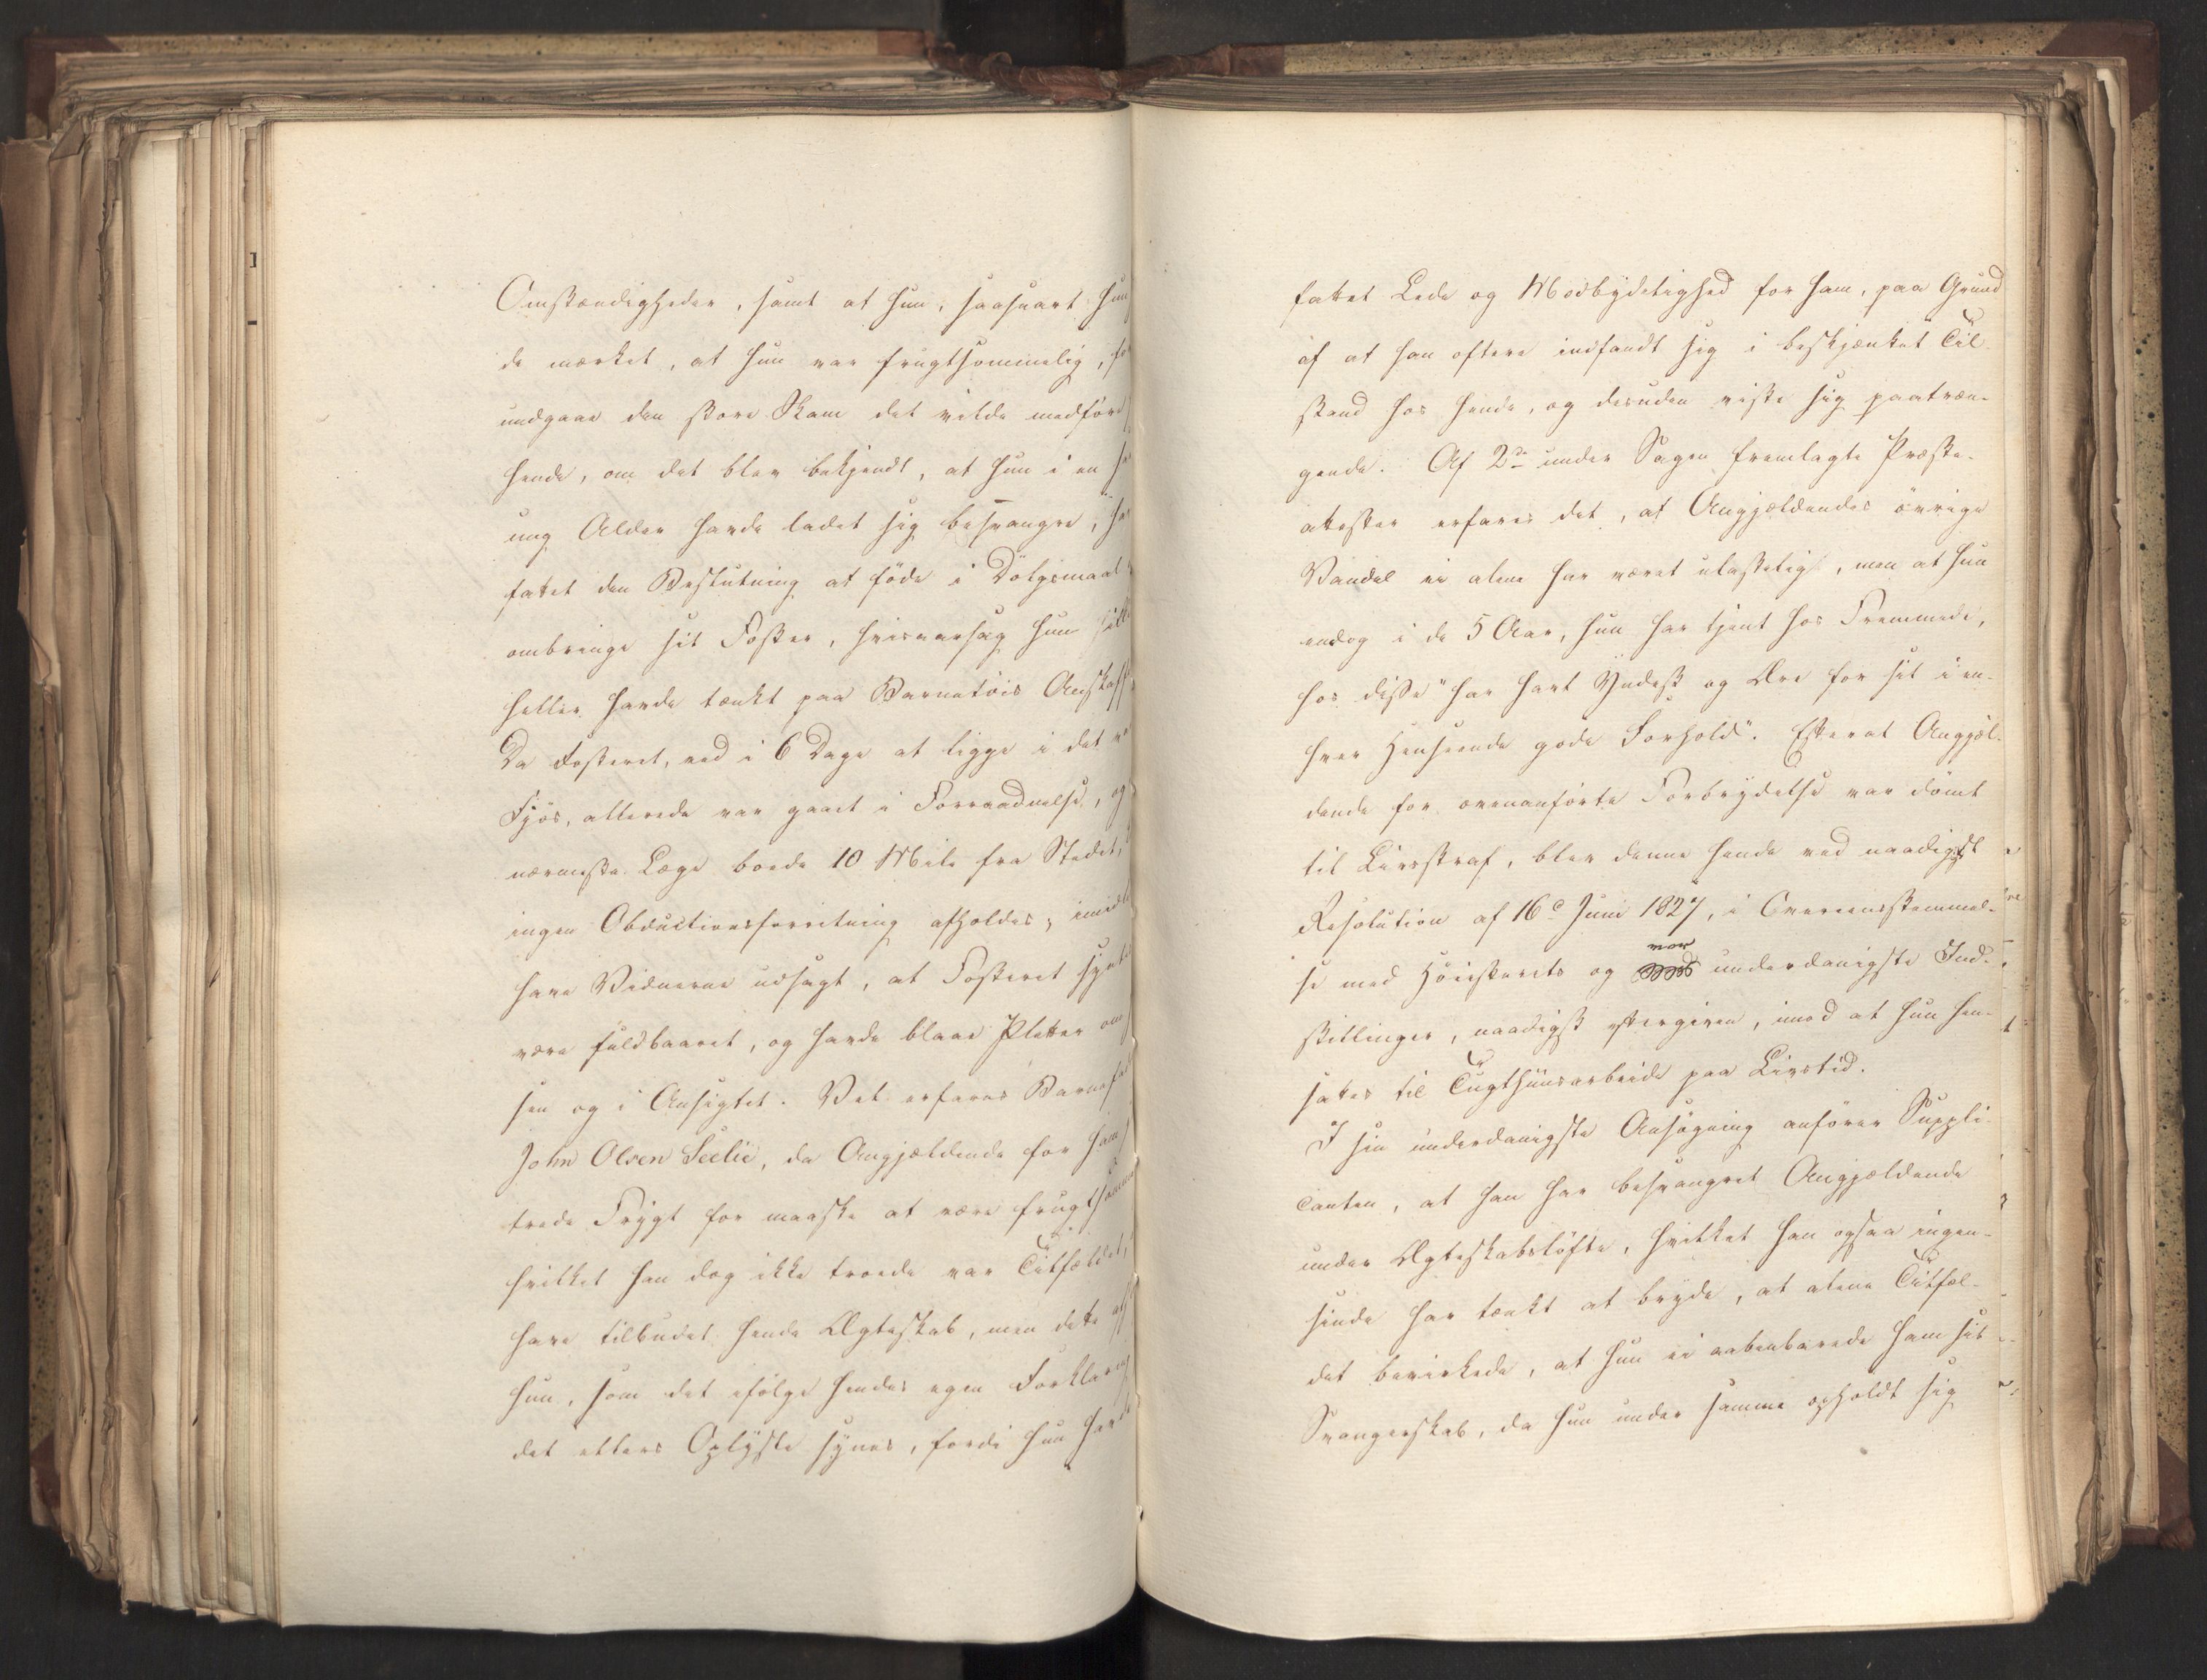 Omstændigheder, samt at hun, saasnart hun
de mærket, at hun var frugtsommelig, for
undgaae den store Skam det vilde medføre
hende, om det blev bekjendt, at hun i en
ung Alder havde ladet sig besvangre,
fattet den Beslutning at føde i Dølgsmaal
ombringe sit Foster, hvisaarsag hun
heller havde tænkt paa Barnetøis
Da Fosteret, ved i 6 Dage at ligge i det
Fjøs, allerede var gaaet i Forraadnelse, og
nærmeste Læge boede 10 Mile fra Stedet,
ingen Obductionsforretning afholdes;
have Vidnerne udsagt, at Fosteret
være fuldbaaret, og havde blaae Pletter
sen og i Ansigtet. Vel erfares
John Olsen Seelie, da Angjældende for ham
trede Frygt for maaske at være
hvilket han dog ikke troede var Tilfældet,
have tilbudet hende Ægteskab, men dette
hun, som det ifølge hendes egen
det ellers Oplyste synes, fordi hun
fattet Lede og Modbydelighed for ham, paa Grund
af at han oftere indfandt sig i beskjænket Til-
stand hos hende, og desuden viste sig paatræn-
gende. Af 2de under Sagen fremlagte Præste-
attester erfares det, at Angjældendes øvrige
Vandel ei alene har været ulastelig, men at hun
endog i de 5 Aar, hun har tjent hos Fremmede,
hos disse "har havt Yndest og Ære for sit i en-
hver Henseende gode Forhold". Efterat Angjæl-
dende for ovenanførte Forbrydelse var dømt
til Livsstraf, blev denne hende ved naadigst
Resolution af 16d Juni 1827, i Overeensstemmel-
se med Høiesterets og vor underdanigste Ind-
stillinger, naadigst eftergiven, imod at hun hen-
sattes til Tugthuusarbeide paa Livstid.
I sin underdanigste Ansøgning anfører Suppli-
canten, at han har besvangret Angjældende
under Ægteskabsløfte, hvilket han ogsaa ingen-
sinde har tænkt at bryde, at alene Tilfæl-
det bevirkede, at hun ei aabenbarede ham sit
Svangerskab, da hun under samme opholdt sig